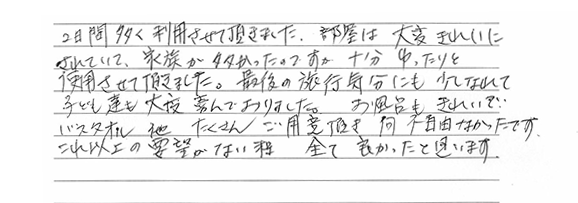 2日間 多く利用させて頂きました。部屋は 大変きれいに
されていて、家族が多かったのですが 十分 ゆったりと
使用させて頂きました。最後の旅行気分にも 少しなれて
子ども達も 大変 喜んでおりました。 お風呂も きれいで
バスタオル 他 たくさん ご用意頂き 何不自由なかったです。
これ以上の 要望がない程 全て 良かったと思います。